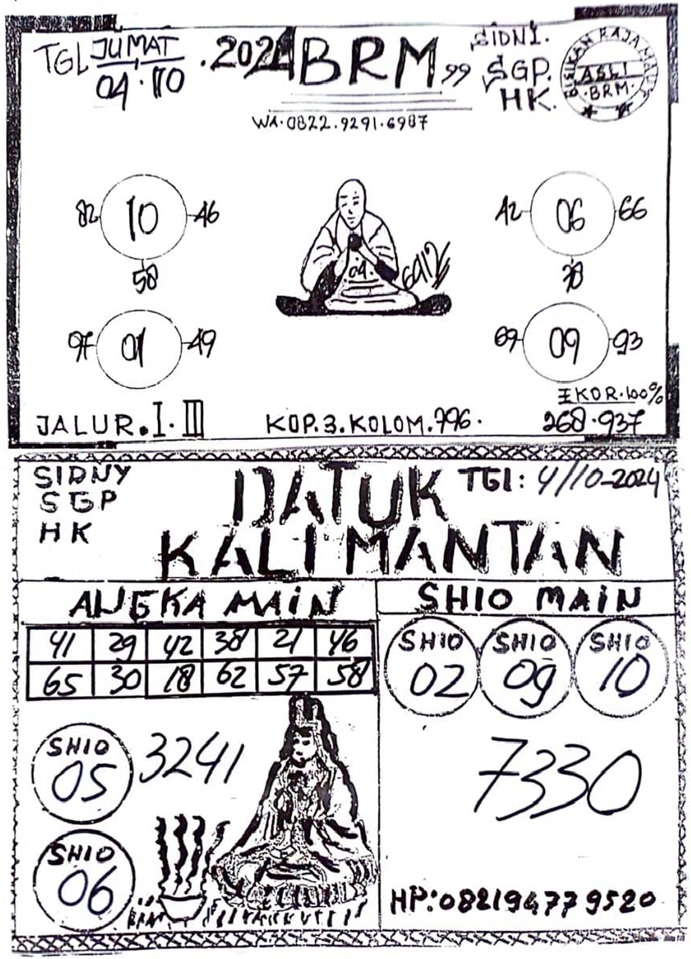 TGL JUMAT .2024 BRM 99 SIDNI.
04.10 SGP.
HK.
ASLI
BRM.
WA.0822.9291.6987
82 10 46
58
42 06 66
04
97 01 49
69 09 93
EKOR.100%
JALUR.I.III KOP.3.KOLOM.796. 268.937
SIDNY
SGP
HK
DATUK TGl: 4/10-2024
KALIMANTAN
ANGKA MAIN
41 29 42 38 21 46
65 30 18 62 57 58
SHIO MAIN
SHIO 02
SHIO 09
SHIO 10
SHIO 05
3241
7330
SHIO 06
HP:082194779520